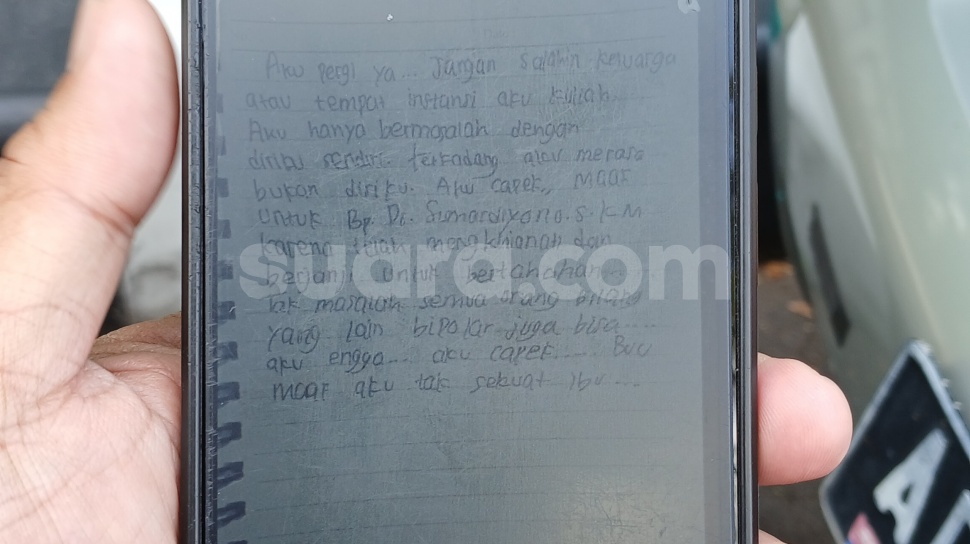 Aku pergi ya... Jangan salahin keluarga
atau tempat instansi aku kuliah
Aku hanya bermasalah dengan
diriku sendiri terkadang aku merasa
bukan diriku. Aku capek, maaf
untuk Bp. Di. Sumardiyono. S. KM
karena telah mengkhianati dan
berjanji untuk bertahahan....
tak masalah semua orang bilang
yang lain bipolar juga bisa....
aku engga... aku capek..... Buu
maaf aku tak sekuat ibu....
suara.com